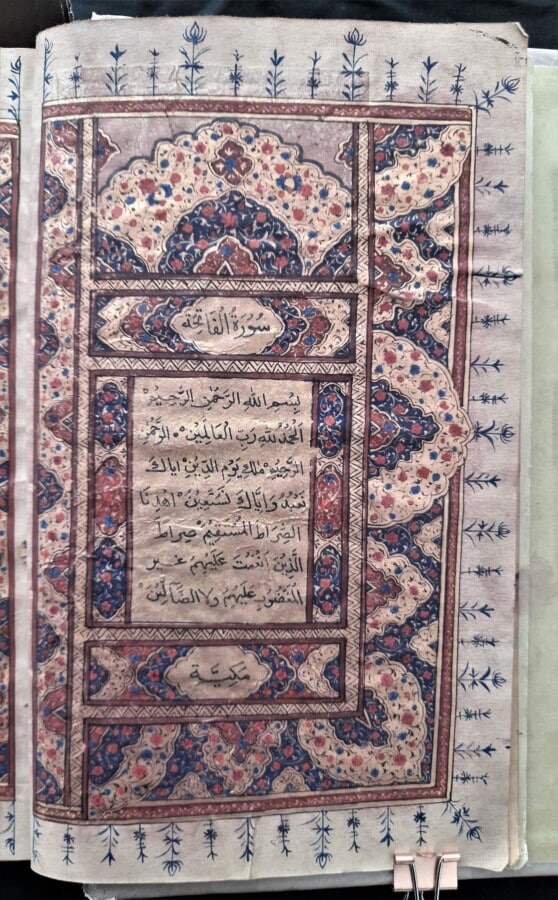 سُورَةُ الْفَاتِحَةِ
بِسْمِ اللهِ الرَّحْمٰنِ الرَّحِيْمِ
اَلْحَمْدُ لِلّٰهِ رَبِّ الْعَالَمِيْنَ الرَّحْمٰنِ
الرَّحِيْمِ مَالِكِ يَوْمِ الدِّيْنِ اِيَّاكَ
نَعْبُدُ وَاِيَّاكَ نَسْتَعِيْنُ اِهْدِنَا
الصِّرَاطَ الْمُسْتَقِيْمَ صِرَاطَ
الَّذِيْنَ اَنْعَمْتَ عَلَيْهِمْ غَيْرِ
الْمَغْضُوْبِ عَلَيْهِمْ وَلَا الضَّآلِّيْنَ
مَكِّيَّة